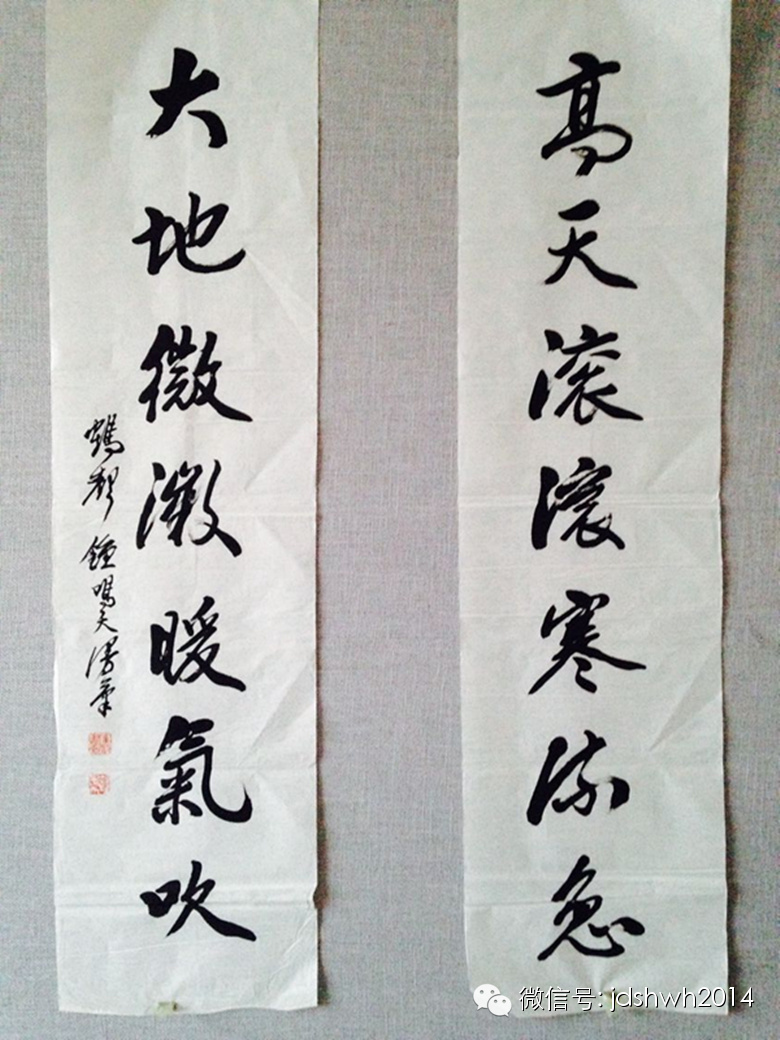 高天滚滚寒流急
大地微微暖氣吹
鶴智 鍾鳴天漫筆
微信号: jdshwh2014